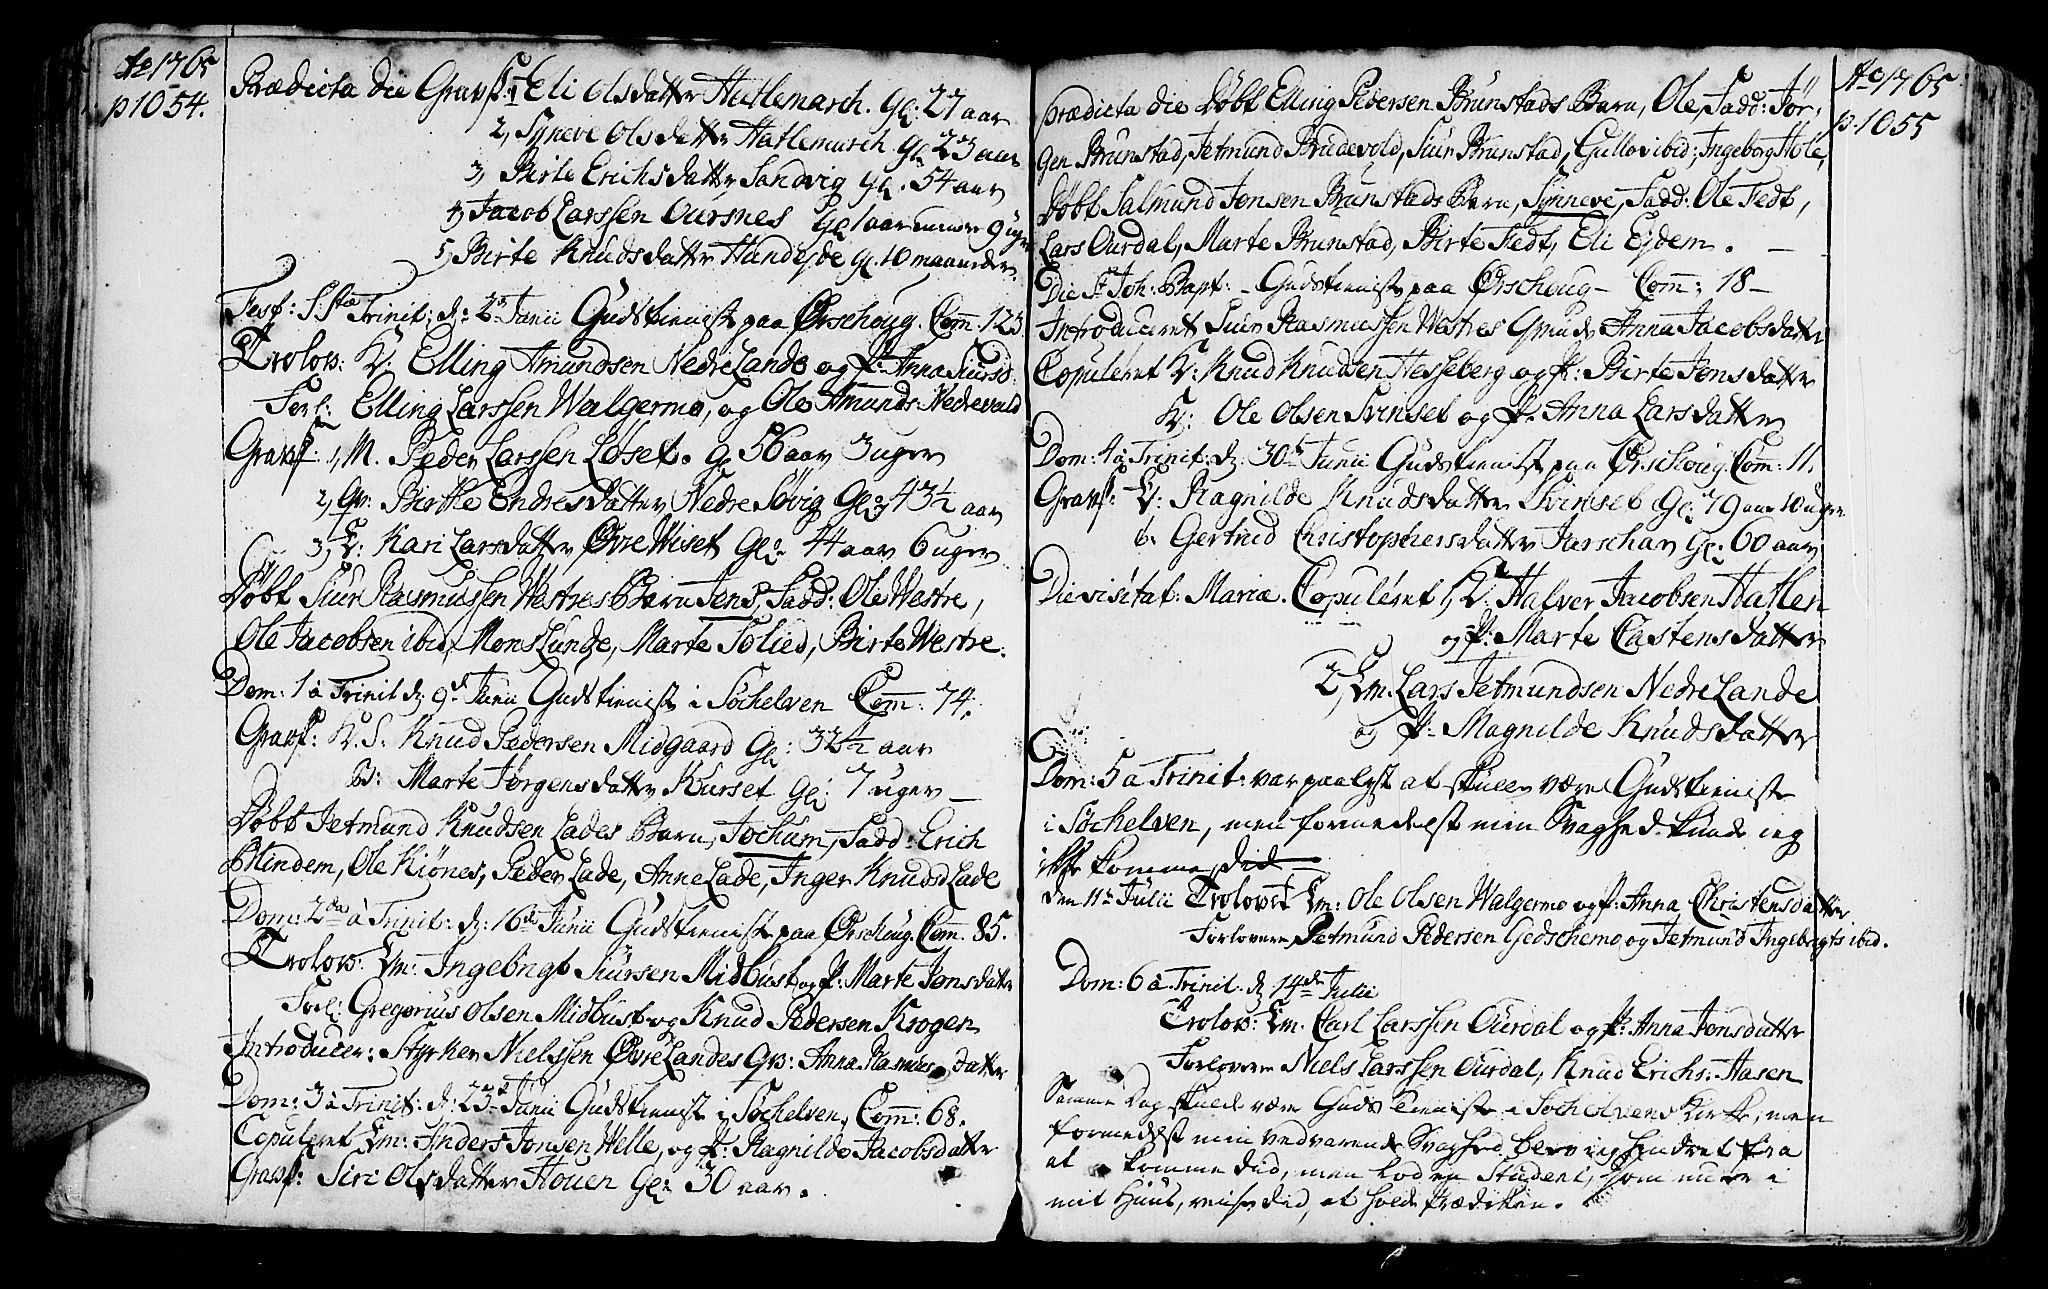 Ao 1765
p 1054.
Prædicta die Gravf: 1, Eli Olsdatter Hatlemarch. Gl: 27 aar
2, Syneve Olsdatter Hatlemarch Gl 23 aar
3, Birte Erichsdatter Sandvig Gl. 54 aar
4, Jacob Larssen Oursnes Gl 1 aar 9 uger
5, Birte Knudsdatter Handejde Gl. 10 maaneder
Fest: S. Stæ Trinit: d: 2d Junii Gudstieniste paa Ørschoug. Com: 123
Trolov: K: Elling Amundsen Nedre Lande og P: Anna Siursd:
Forl: Elling Larssen Walgermo, og Ole Amunds: Nedrevold
Gravf: 1, M. Peder Larssen Løset. G 56 aar 3 uger
2, Qv: Birthe Endresdatter Nedre Søvig Gl: 43½ aar
3, Kari Larsdatter Øvre Wiset Gl: 4 aar 6 uger
Døbt Siur Rasmussen Westres Barn Jens, Fadd: Ole Westre,
Ole Jacobsen ibid, Mons Lunde, Marte Sølied, Birte Westre.
Dom: 1 à Trinit d: 9d Junii Gudstieniste i Søchelven Com: 74.
Gravf: K. S: Knud Pedersen Midgaard Gl: 32½ aar
B: Marte Jørgensdatter Kurset Gl: 7 uger
Døbt Jetmund Knudsen Lades Barn, Jochum, Fadd: Erich
Blindem, Ole Kiønes, Peder Lade, Anne Lade, Inger Knudsd Lade
Dom: 2da à Trinit: d: 16de Junii Gudstieniste paa Ørschoug. Com. 85.
Trolov: Em: Ingebrigt Siursen Midbust og P: Marte Jonsdatter
Forl: Gregorius Olsen Midbust og Knud Pedersen Krogen
Introducer: Styrker Nielssen Øvre Landes Qv: Anna Rasmusdatter
Dom: 3 à Trinit: d: 23d Junii Gudstieniste i Søchelven, Com: 68.
Copuleret Em: Anders Jonsen Welle, og P: Ragnilde Jacobsdatter
Gravf: Siri Olsdatter Houen Gl: 30 aar.
Ao 1765
p. 1055
Prædicta die Døbt Elling Pedersen Brunstads Barn, Ole, Fadd: Jør-
gen Brunstad, Jetmund Brudevold, Siur Brunstad, Gullov ibid; Ingeborg Hole,
Døbt Salmund Jonsen Brunstads Barn, Synneve, Fadd: Ole Fedt,
Lars Ourdal, Marte Brunstad, Birte Fedt, Eli Ejdem.
Die St Joh: Bapt: Gudstieniste paa Ørschoug Com: 18
Introduceret Siur Rasmussen Westres Qvinde Anna Jacobsdatter
Copuleret K: Knud Knudsen Hesseberg og P: Birte Jonsdatter
K: Ole Olsen Svinset og P: Anna Larsdatter
Dom: 4 à Trinit: d: 30te Junii Gudstieniste paa Ørschoug Com: 11.
Gravf: Ragnilde Knudsdatter Svinset Gl: 79 aar 10 uger
b. Gertrud Christophersdatter Jarschar Gl: 60 aar
Die visitat: Mariæ. Copuleret 1, K: Halver Jacobsen Hatlen
og P: Marte Castensdatter
2, Em. Lars Jetmundsen Nedre Lande
og P: Magnilde Knudsdatter
Dom: 5 à Trinit: var paalyst at skulle være Gudstieniste
i Søchelven, men formedelst min Svaghed kunde jeg
ikke komme did
den 11te Julii Troloved Em: Ole Olsen Walgermo og P: Anna Christensdatter
Forlovere Jetmund Pedersen Gedschemo, og Jetmund Ingebrigts ibid.
Dom: 6 à Trinit. d: 14de Julii
Trolov: Em. Carl Larssen Ourdal og P: Anna Jonsdatter
Forlovere Niels Larssen Ourdal, Knud Erichs: Aasen
Samme Dag skulde være Guds tieniste i Søchelvens Kirke, men
formedelst min vedvarende Svaghed blev ieg hindret fra
at komme did, men lod en Student, som er i
mit Huus, reise did, at holde Prædiken.